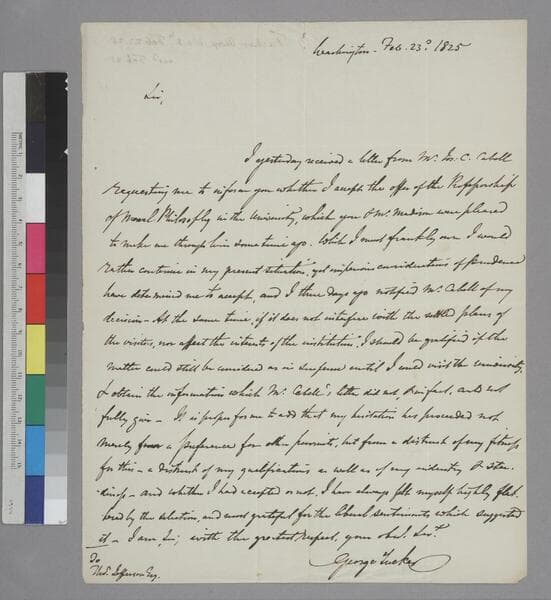 Washington. Feb. 23d. 1825
Sir,
I yesterday received a letter from Mr. Jos. C. Cabell
requesting me to inform you whether I accept the offer of the Professorship
of Moral Philosophy in the University, which you & Mr. Madison were pleased
to make me through him some time ago. Whilst I must frankly own I would
rather continue in my present situation, yet imperious considerations of prudence
have determined me to accept, and I three days ago notified Mr. Cabell of my
decision - At the same time, if it does not interfere with the settled plans of
the visitors, nor affect the interests of the institution, I should be gratified if the
matter could still be considered as in suspense until I could visit the university,
& obtain the information which Mr. Cabell's letter did not, & could not
fully give - It is proper for me to add that my hesitation has proceeded not
merely from a preference for other pursuits, but from a distrust of my fitness
for this - a distrust of my qualifications as well as of my industry & stea-
diness - and whether I had accepted or not, I have always felt myself highly flat-
tered by the selection, and most grateful for the liberal sentiments which suggested
it - I am, Sir, with the greatest respect, your obed. Servt.
George Tucker
To
Thos. Jefferson Esq.